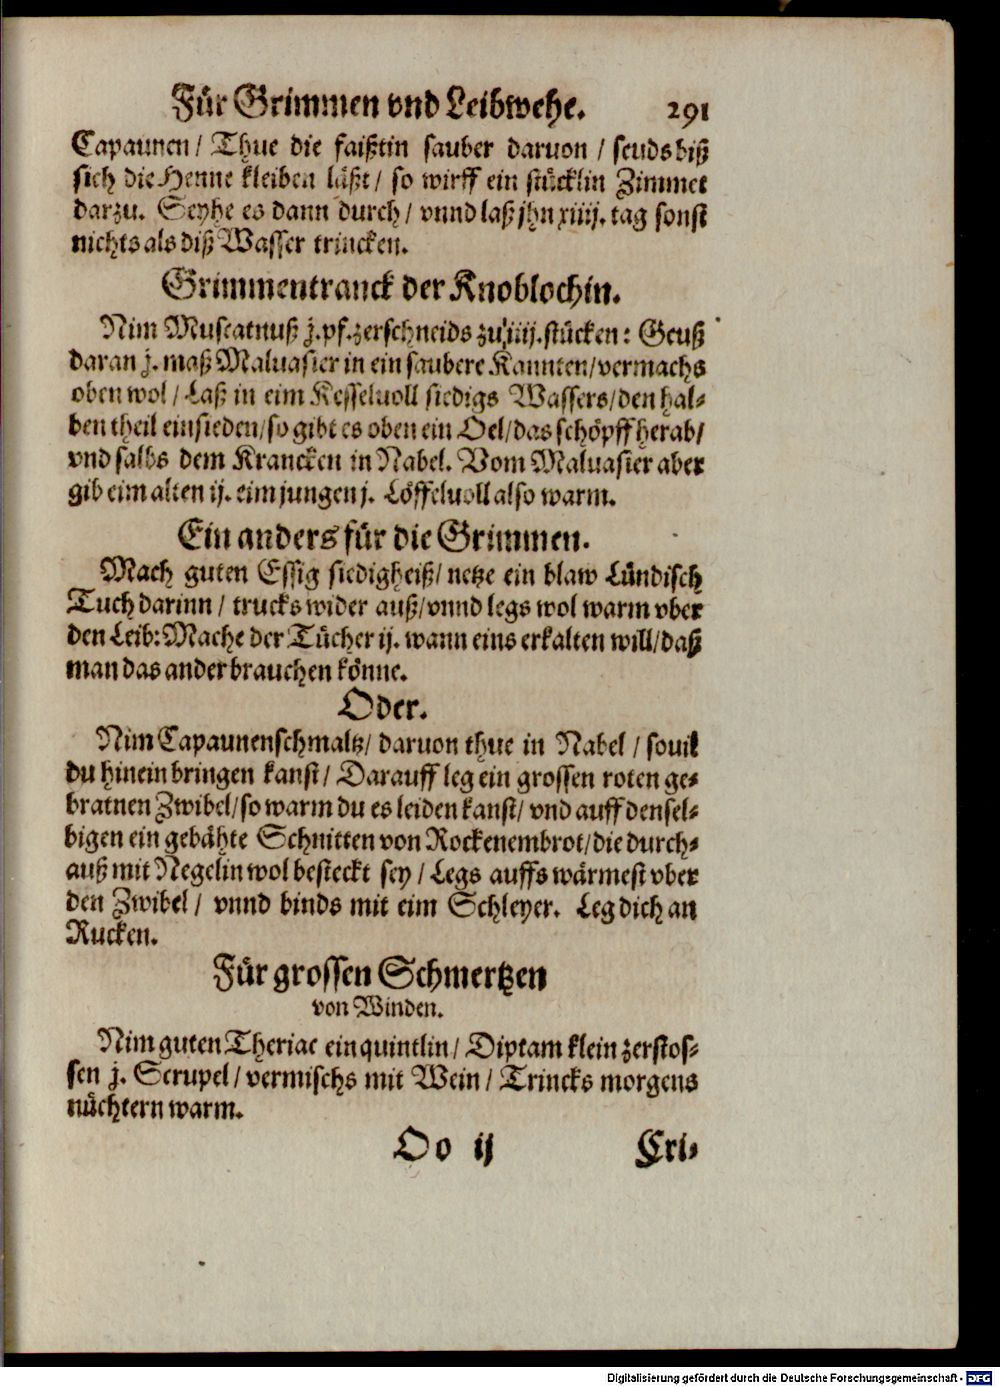 Für Grimmen vnd Leibwehe. 291
Capaunen / Thue die faißtin sauber daruon / seuds biß
sich die Henne kleiben läßt / so wirff ein stücklin Zimmet
darzu. Seyhe es dann durch / vnnd laß jhn xiiij. tag sonst
nichts als diß Wasser trincken.
Grimmentranck der Knoblochin.
Nim Muscatnuß j. pf. zerschneids zu iiij. stücken: Geuß
daran j. maß Maluasier in ein saubere Kannten / vermachs
oben wol / Laß in eim Kesselvoll siedigs Wassers / den hal-
ben theil einsieden / so gibt es oben ein Oel / das schöpff herab /
vnd salbs dem Krancken in Nabel. Vom Maluasier aber
gib eim alten ij. eim jungen j. Löffelvoll also warm.
Ein anders für die Grimmen.
Mach guten Essig siedigheiß / netze ein blaw Lündisch
Tuch darinn / trucks wider auß / vnnd legs wol warm vber
den Leib: Mache der Tücher ij. wann eins erkalten will / daß
man das ander brauchen könne.
Oder.
Nim Capaunenschmaltz / daruon thue in Nabel / souil
du hinein bringen kanst / Darauff leg ein grossen roten ge-
bratnen Zwibel / so warm du es leiden kanst / vnd auff densel-
bigen ein gebähte Schnitten von Rockenembrot / die durch-
auß mit Negelin wol besteckt sey / Legs auffs wärmest vber
den Zwibel / vnnd binds mit eim Schleyer. Leg dich an
Rucken.
Für grossen Schmertzen
von Winden.
Nim guten Theriac ein quintlin / Diptam klein zerstos-
sen j. Scrupel / vermischs mit Wein / Trincks morgens
nüchtern warm.
Oo ij Cri-
Digitalisierung gefördert durch die Deutsche Forschungsgemeinschaft - DFG